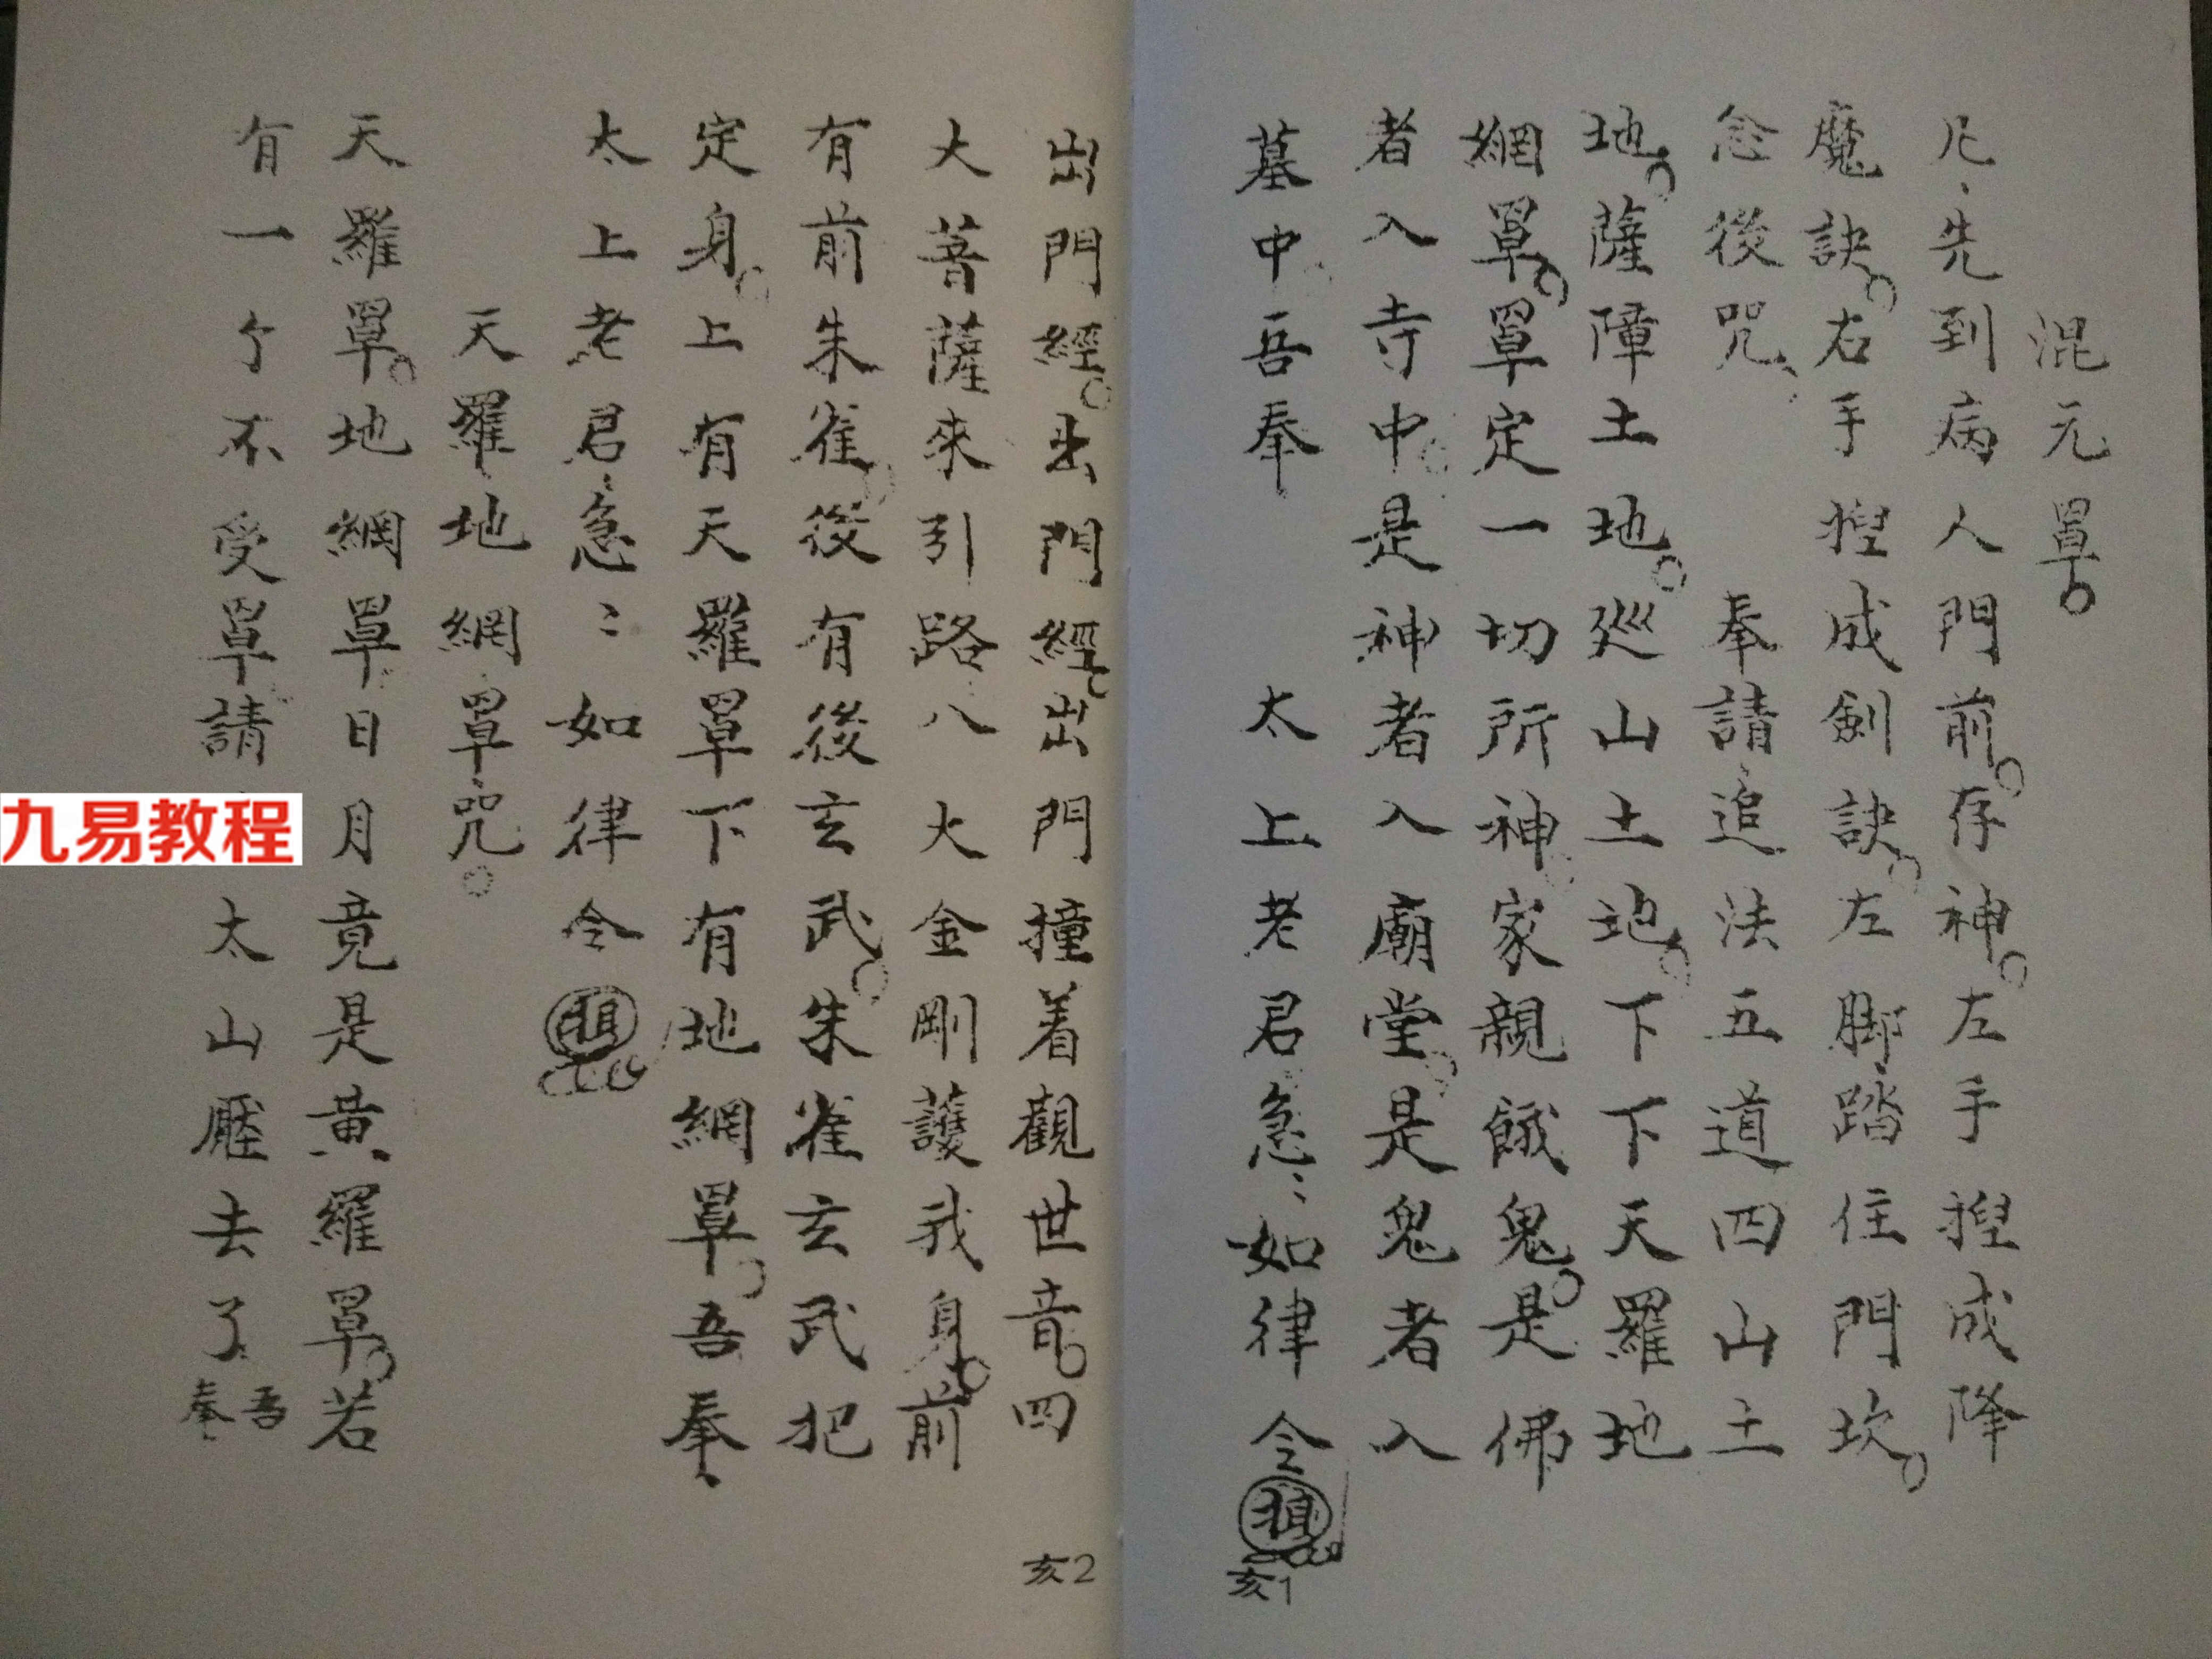 混元罩
凡先到病人門前存神左手揑成降
魔訣右手揑成劍訣左脚踏住門坎
念後咒 奉請追法五道四山土
地薩障土地廵山土地下下天羅地
網罩罩定一切所神家親餓鬼是佛
者入寺中是神者入廟堂是鬼者入
墓中吾奉 太上老君急〻如律令
亥1
出門經出門經出門撞着觀世音四
大菩薩來引路八大金剛護我身前
有前朱雀後有後玄武朱雀玄武把
定身上有天羅罩下有地網罩吾奉
太上老君急〻如律令
天羅地網罩咒
天羅罩地網罩日月竟是黃羅罩若
有一个不受罩請 太山壓去了吾奉
亥2
九易教程